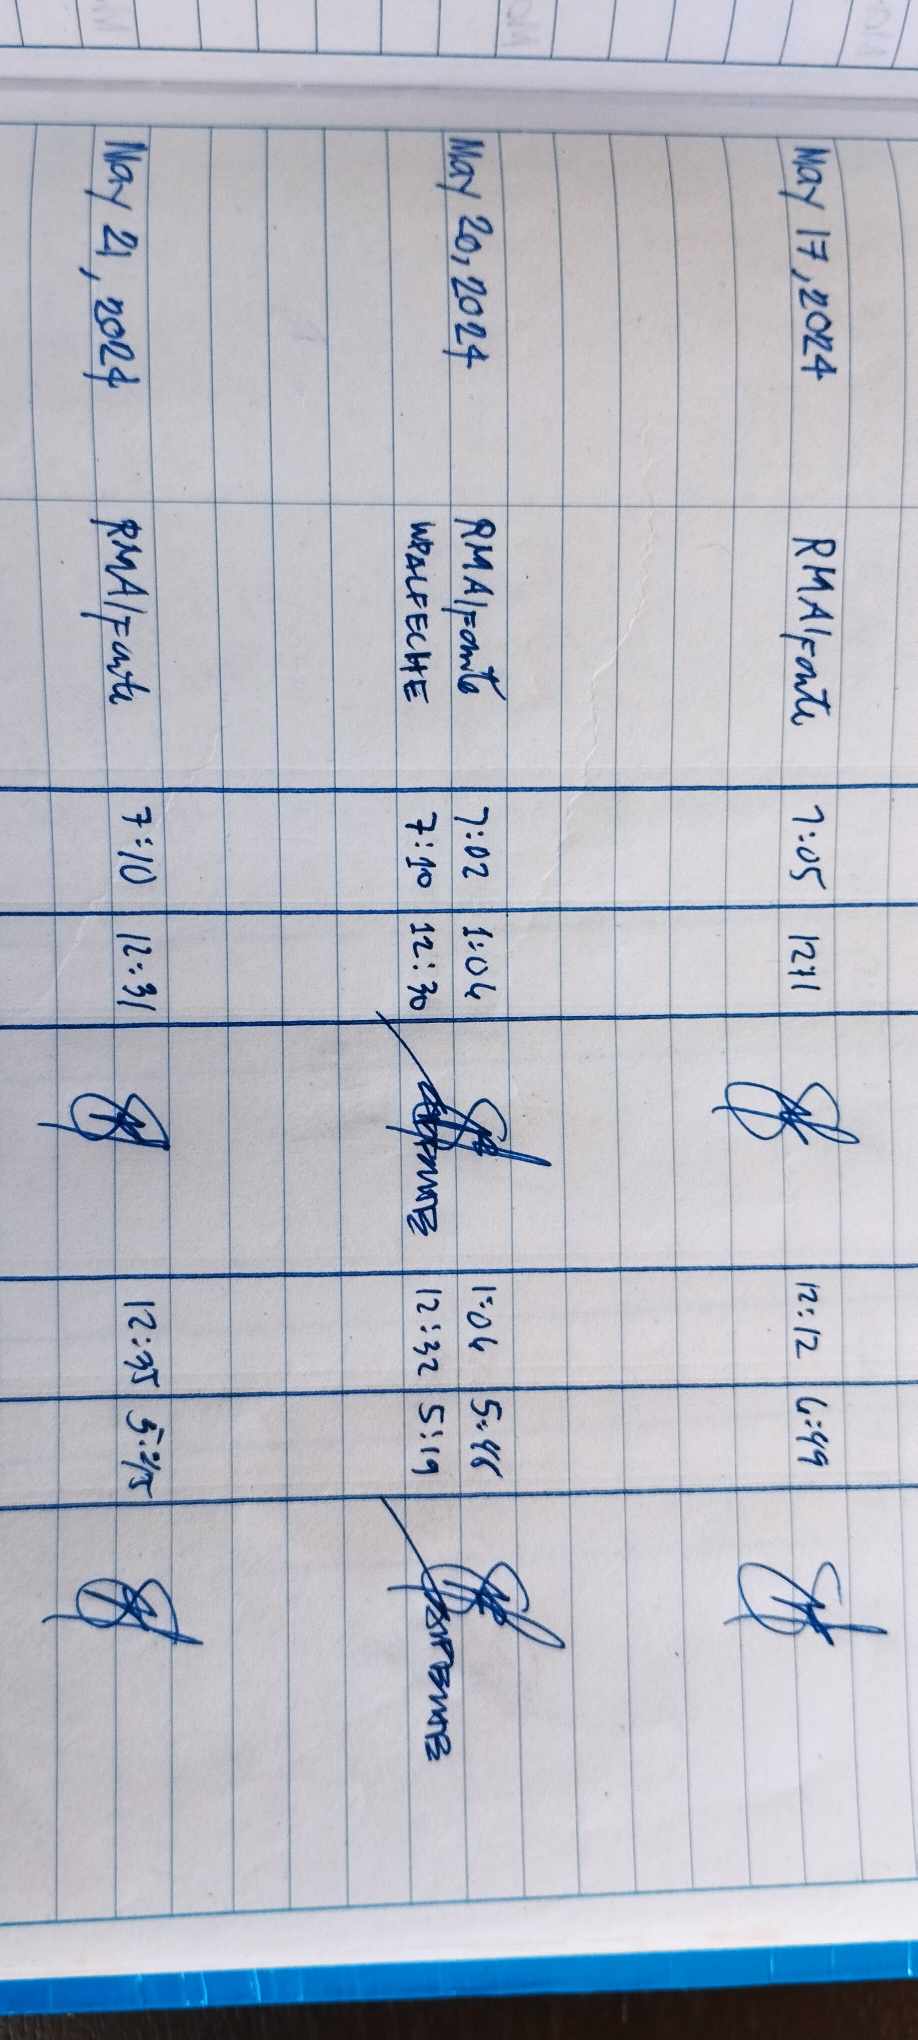 May 17, 2024 RMAlfonte 7:05 1211 12:12 6:49
May 20, 2024 RMAlfonte 7:02 1:04 1:04 5:46
WPALFECHE 7:10 12:30 12:32 5:19
May 21, 2024 RMAlfonte 7:10 12:31 12:35 5:25